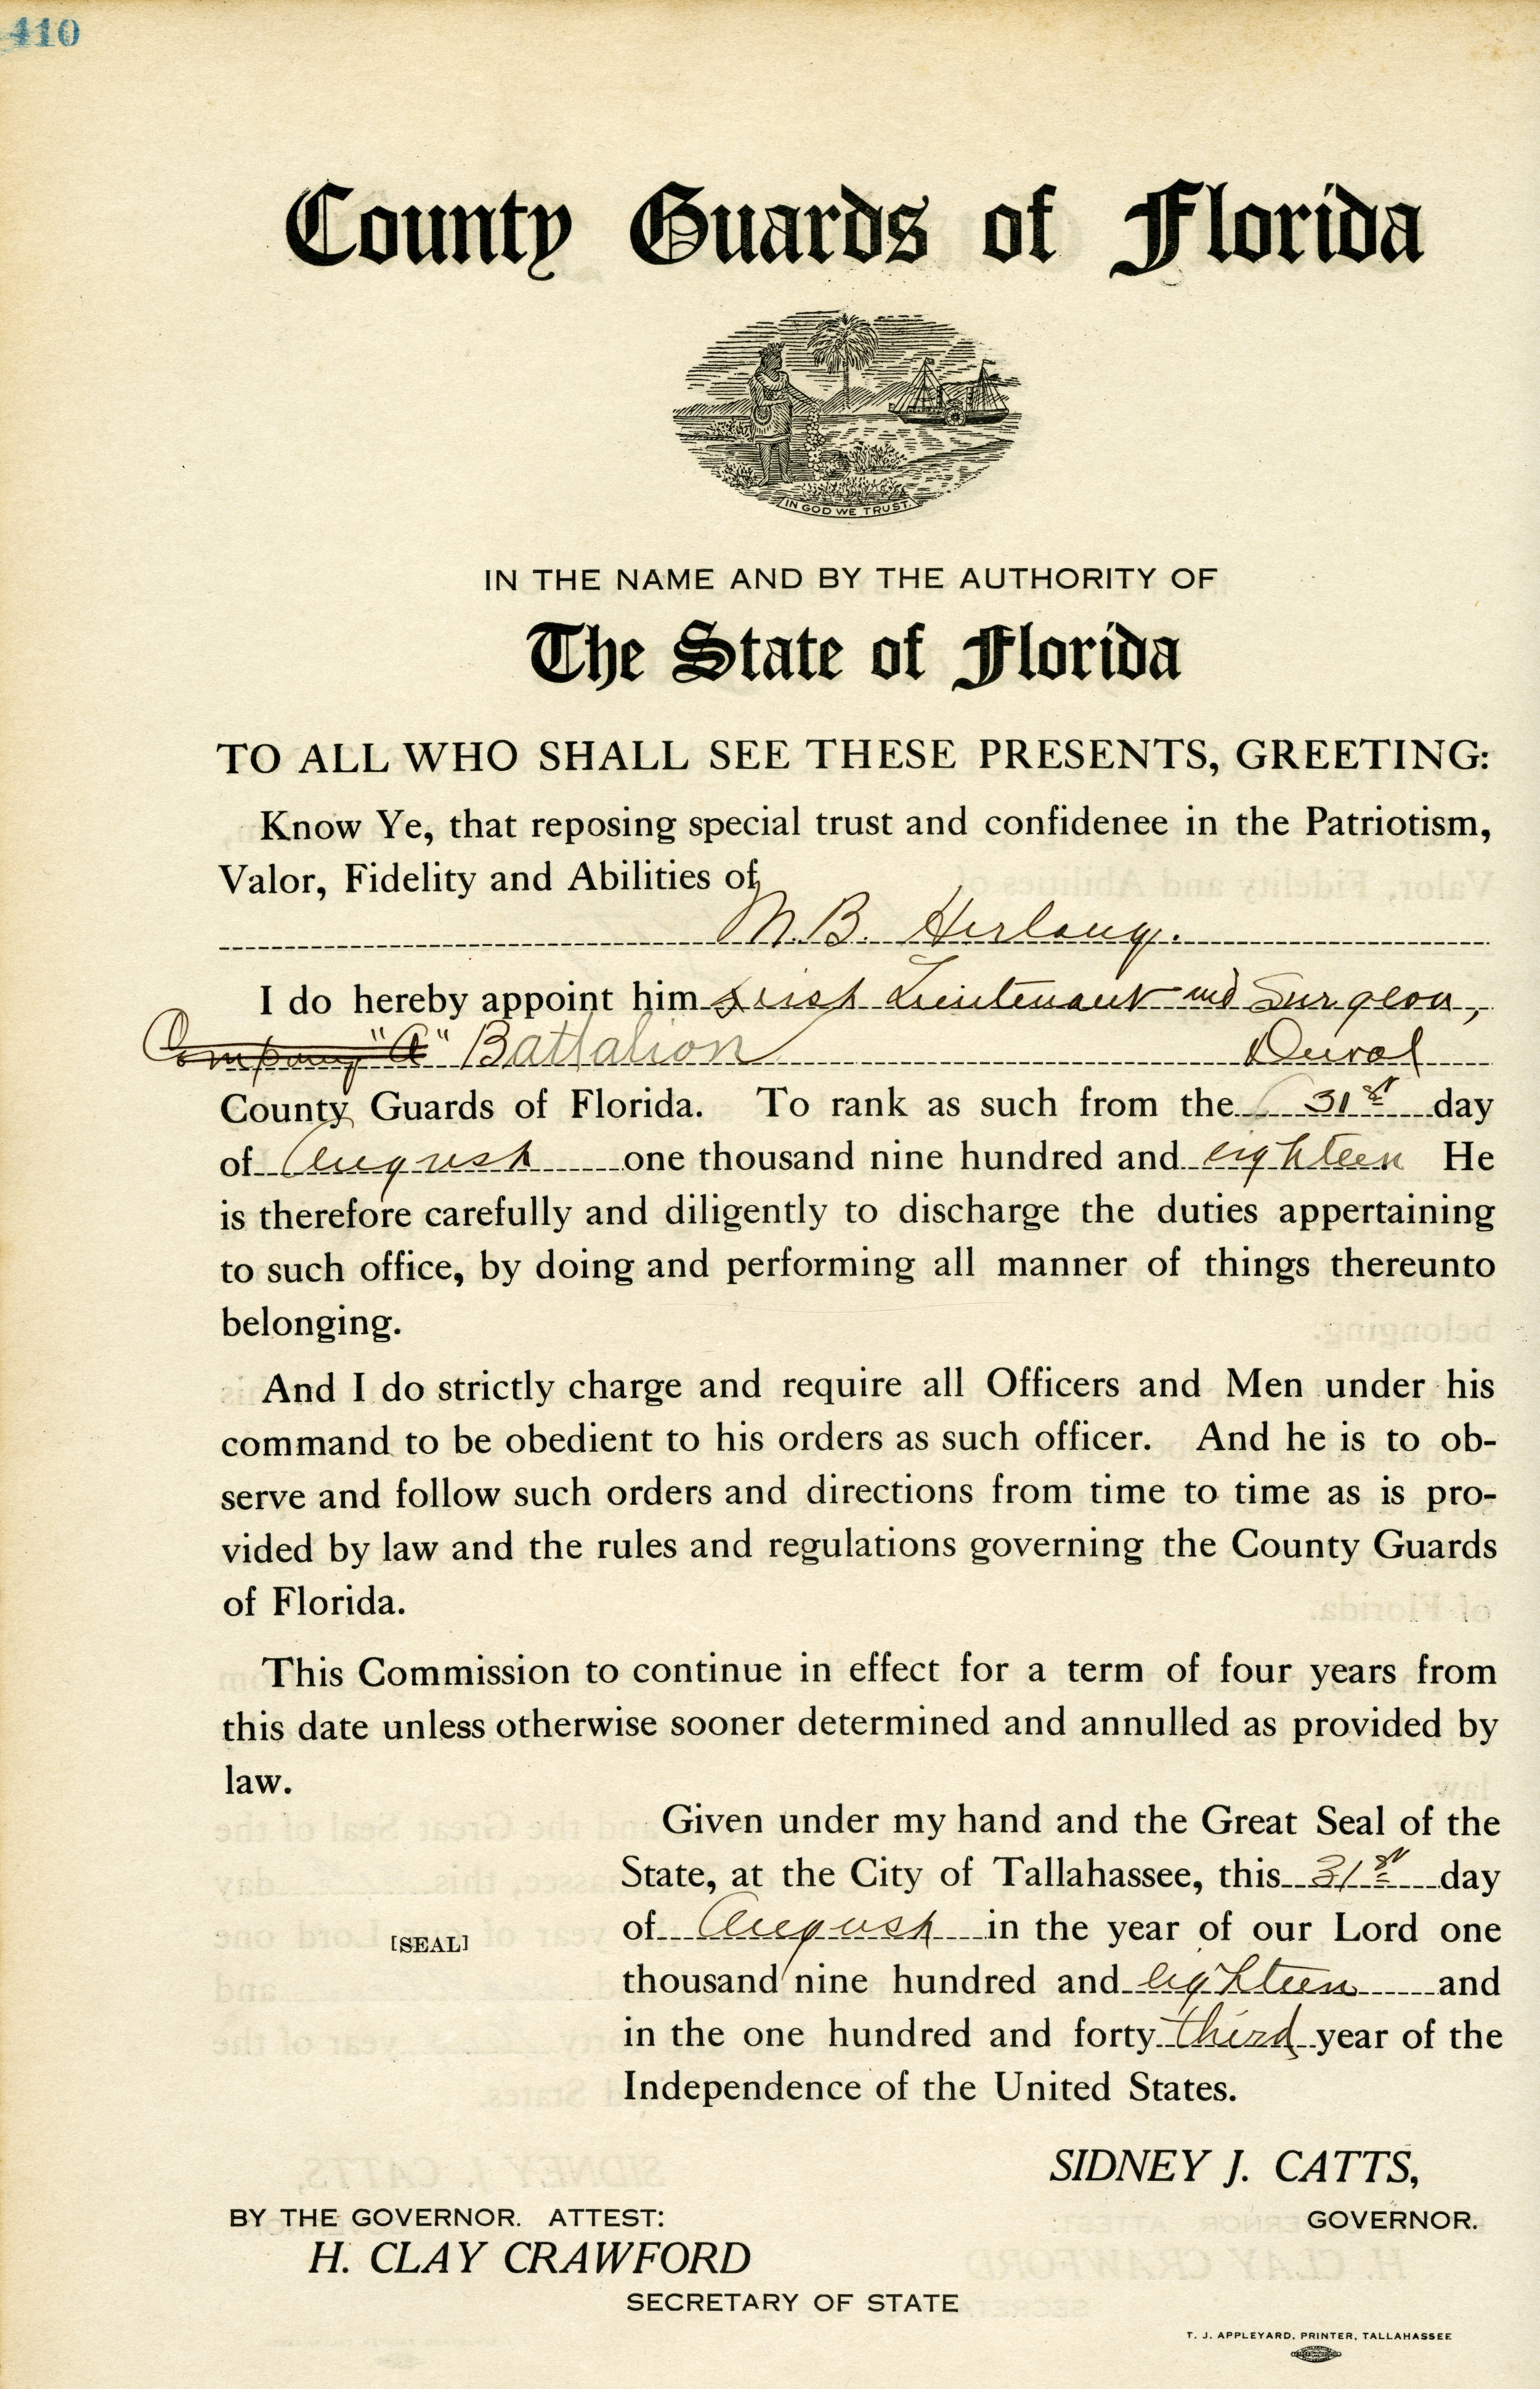 410
County Guards of Florida
IN GOD WE TRUST.
IN THE NAME AND BY THE AUTHORITY OF
The State of Florida
TO ALL WHO SHALL SEE THESE PRESENTS, GREETING:
Know Ye, that reposing special trust and confidenee in the Patriotism,
Valor, Fidelity and Abilities of
M. B. Herlong.
I do hereby appoint him First Lieutenant and Surgeon,
Company "A" Battalion Duval
County Guards of Florida. To rank as such from the 31st day
of August one thousand nine hundred and eighteen He
is therefore carefully and diligently to discharge the duties appertaining
to such office, by doing and performing all manner of things thereunto
belonging.
And I do strictly charge and require all Officers and Men under his
command to be obedient to his orders as such officer. And he is to ob-
serve and follow such orders and directions from time to time as is pro-
vided by law and the rules and regulations governing the County Guards
of Florida.
This Commission to continue in effect for a term of four years from
this date unless otherwise sooner determined and annulled as provided by
law.
Given under my hand and the Great Seal of the
State, at the City of Tallahassee, this 31st day
of August in the year of our Lord one
[SEAL]
thousand nine hundred and eighteen and
in the one hundred and forty third year of the
Independence of the United States.
SIDNEY J. CATTS,
BY THE GOVERNOR. ATTEST:
GOVERNOR.
H. CLAY CRAWFORD
SECRETARY OF STATE
T. J. APPLEYARD, PRINTER, TALLAHASSEE